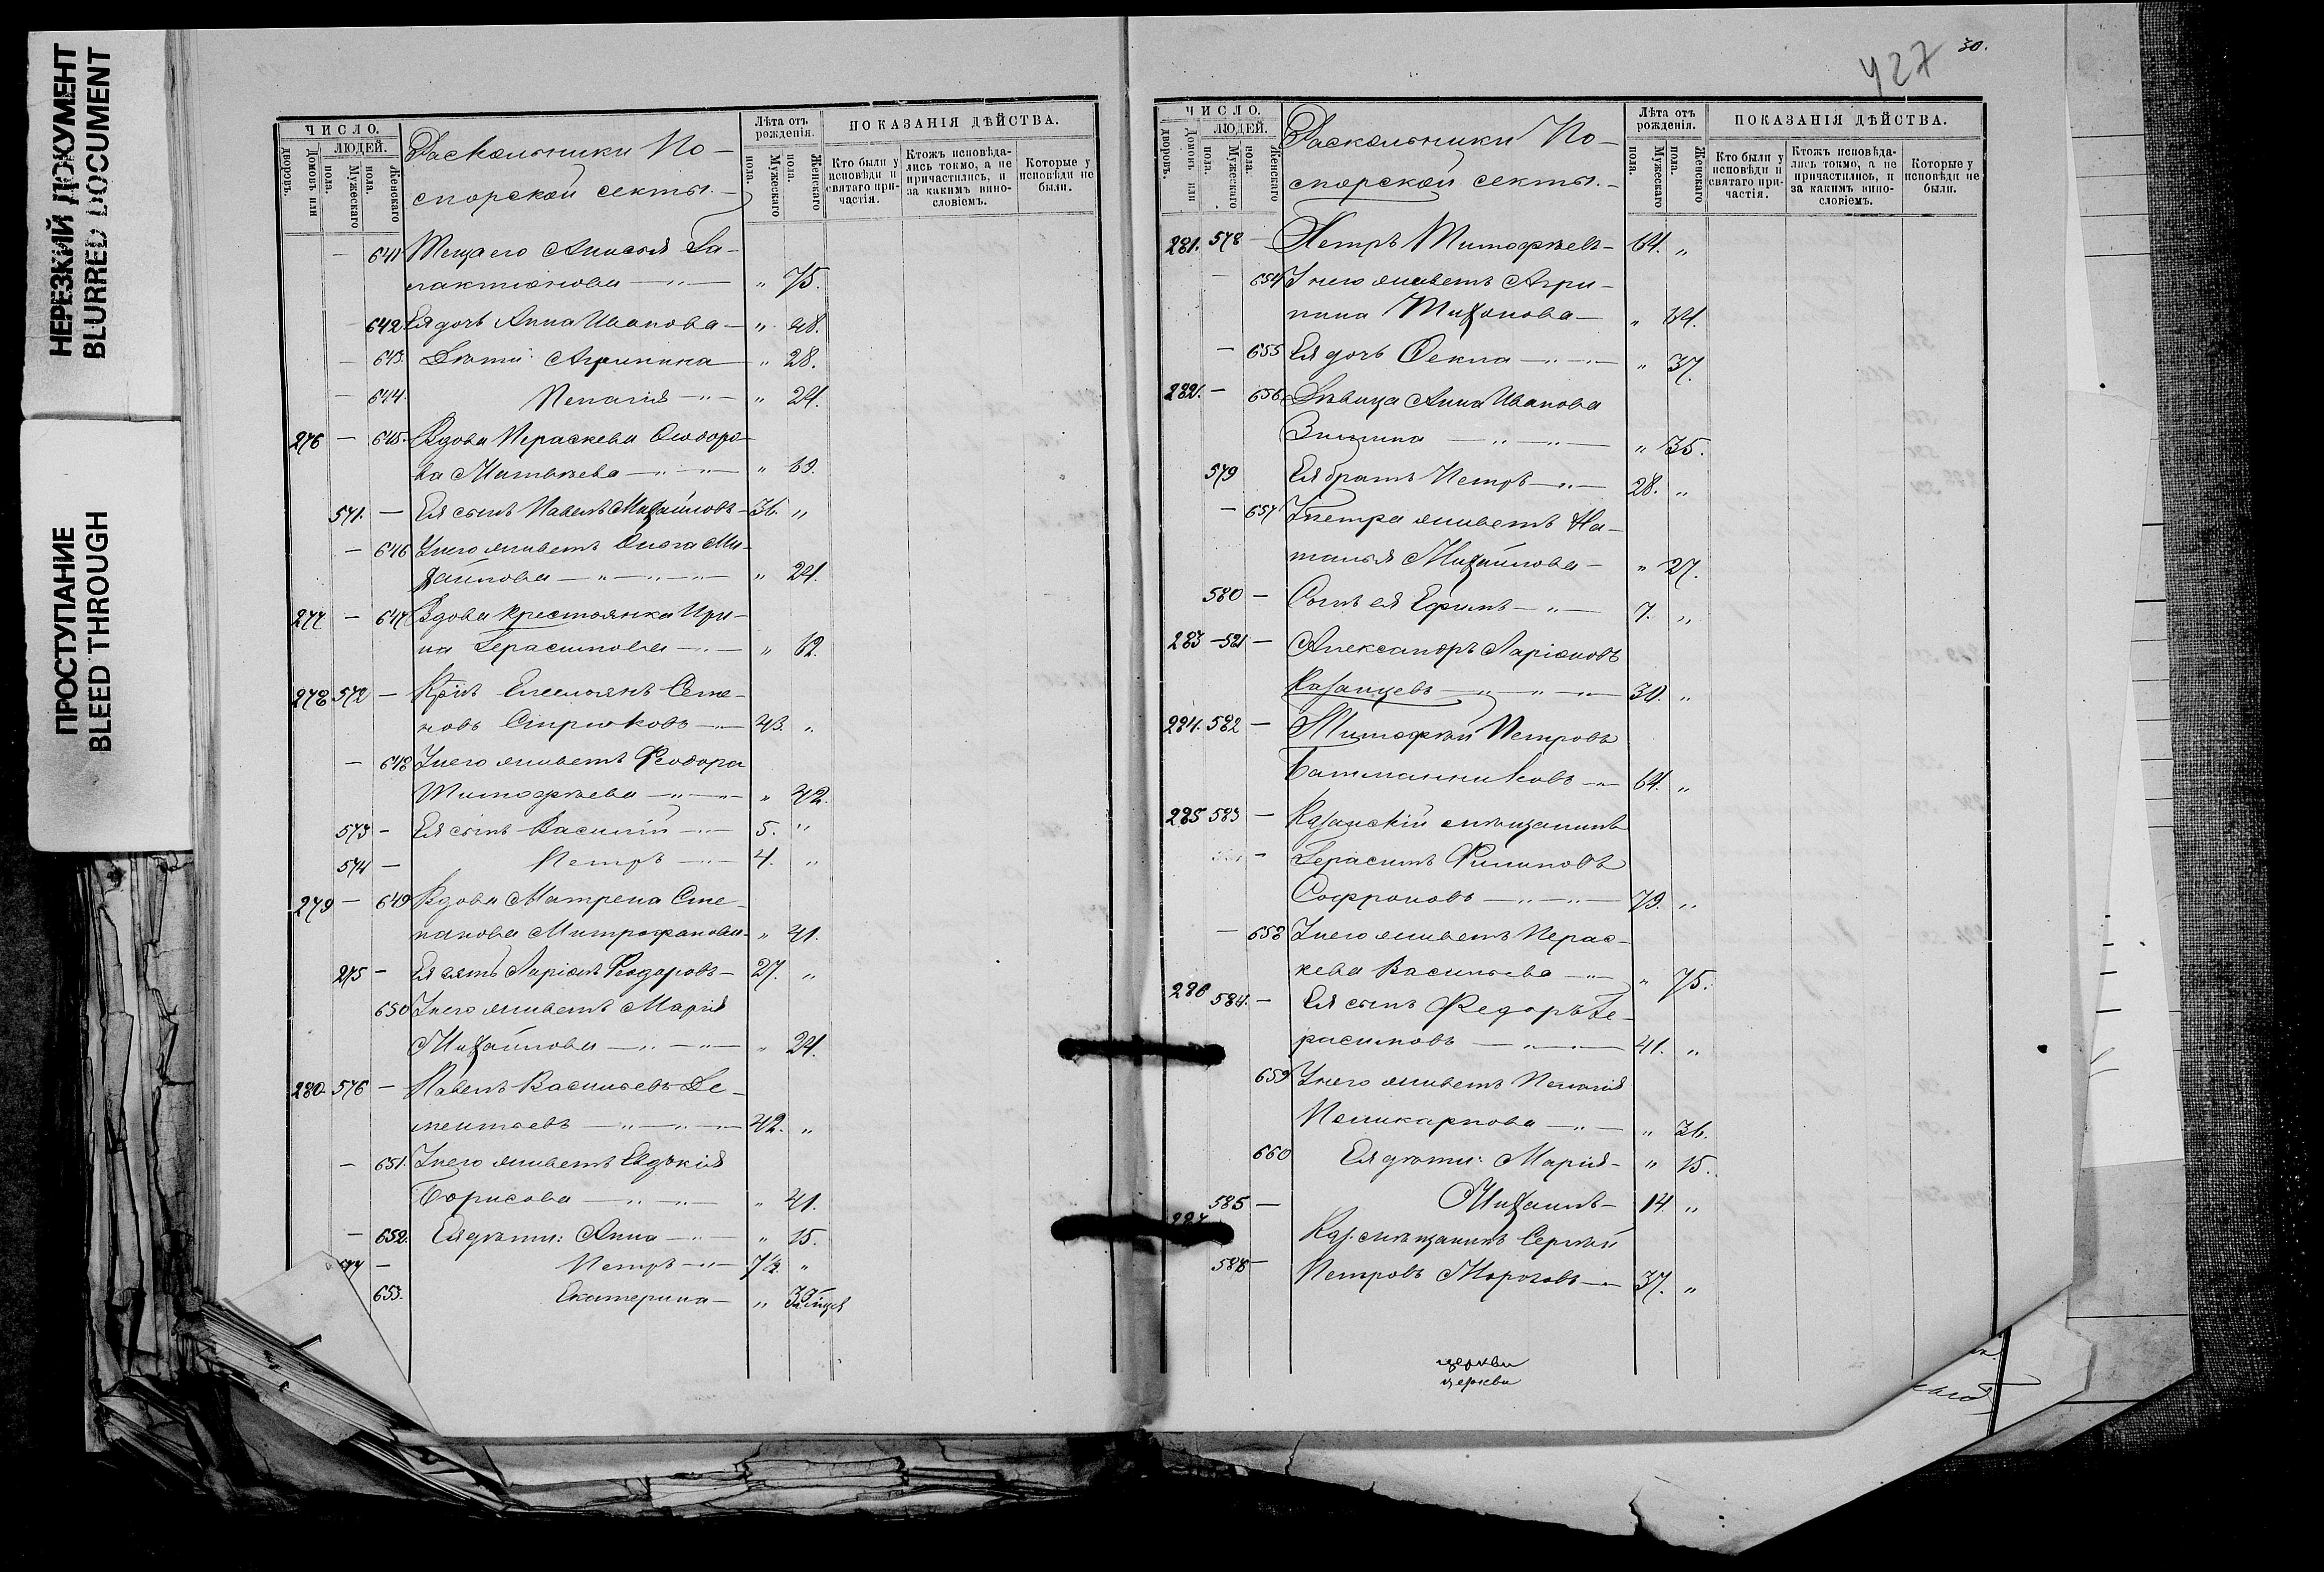 НЕРЕЗКИЙ ДОКУМЕНТ
BLURRED DOCUMENT
ПРОСТУПАНИЕ
BLEED THROUGH
ЧИСЛО.
ЛЮДЕЙ.
дворовъ.
Домовъ или
Мужескаго пола.
Женскаго пола.
Раскольники По-
морской секты.
Лѣта отъ рожденія.
Мужескаго пола.
Женскаго пола.
ПОКАЗАНІЯ ДѢЙСТВА.
Кто были у исповѣди и святаго причастія.
Ктожъ исповѣдались токмо, а не причастились, и за какимъ винословіемъ.
Которые у исповѣди не были.
— 641 Теща его Анисья Га-
лактіонова — " — " 75.
642 Ея дочь Анна Иванова — " 48.
— 643. Дѣти: Агрипина — " 28.
— 644. Пелагія — " — " 24.
276 — 645. Вдова Параскева Ѳеодоро-
ва Матвѣева — " — " 69.
571. — Ея сынъ Павелъ Михайловъ — 36. "
— 646 У него живетъ Ольга Ми-
хайлова — " — " — " 24.
277 — 647 Вдова крестьянка Ири-
на Герасимова — " — " 62.
278 572 — Емельянъ Семе-
новъ Стрюковъ — 43. "
— 648 У него живетъ Ѳеодора
Тимофѣева — " — " 42.
573 — Ея сынъ Василій — " — 5. "
574 — Петръ — " — 4. "
279 — 649 Вдова Матрена Сте-
панова Митрофанова — " 41.
275 — Ея зять Ларіонъ Ѳеодоровъ — 27. "
650 У него живетъ Марія
Михайлова — " — " 24.
280. 576 — Павелъ Васильевъ Де-
ментьевъ — " — " — 42. "
— 651. У него живетъ Евдокія
Борисова — " — " — " 41.
— 652. Ея дѣти: Анна — " — " 15.
577 — Петръ — " — 7 "
653. Екатерина — "
427 30.
ЧИСЛО.
ЛЮДЕЙ.
дворовъ.
Домовъ или
Мужескаго пола.
Женскаго пола.
Раскольники По-
морской секты. —
Лѣта отъ рожденія.
Мужескаго пола.
Женскаго пола.
ПОКАЗАНІЯ ДѢЙСТВА.
Кто были у исповѣди и святаго причастія.
Ктожъ исповѣдались токмо, а не причастились, и за какимъ винословіемъ.
Которые у исповѣди не были.
281. 578 — Петръ Тимофѣевъ — 64. "
— 654 У него живетъ Агри-
пина Тихонова — " 64.
— 655 Ея дочь Ѳекла — " — " 37.
282. — 656. Дѣвица Анна Иванова
Зимина — " — " — " 35.
579 Ея братъ Петръ — " — 28. "
— 657 У Петра живетъ На-
талья Михайлова — " 27.
580 — Сынъ ея Ефимъ — " — 7. "
283 — 521 — Александръ Ларіоновъ
Казанцевъ — " — " — 30. "
284. 582 — Тимофѣй Петровъ
Башмашниковъ — " — 64. "
285 583 — Казанскій мѣщанинъ
— Герасимъ Филиповъ
Софроновъ — " — " — 79. "
— 658 У него живетъ Парас-
кева Васильева — " — " 75.
286 584. — Ея сынъ Федоръ Ге-
расимовъ — " — 41. "
659 У него живетъ Пелагія
Поликарпова — " — " 36.
660 Ея дѣти: Марія — " 15.
585 — Михаилъ — 14. "
287 Каз. мѣщанинъ Сергѣй
588 — Петровъ Морозовъ — 37. "
церкви
церкви